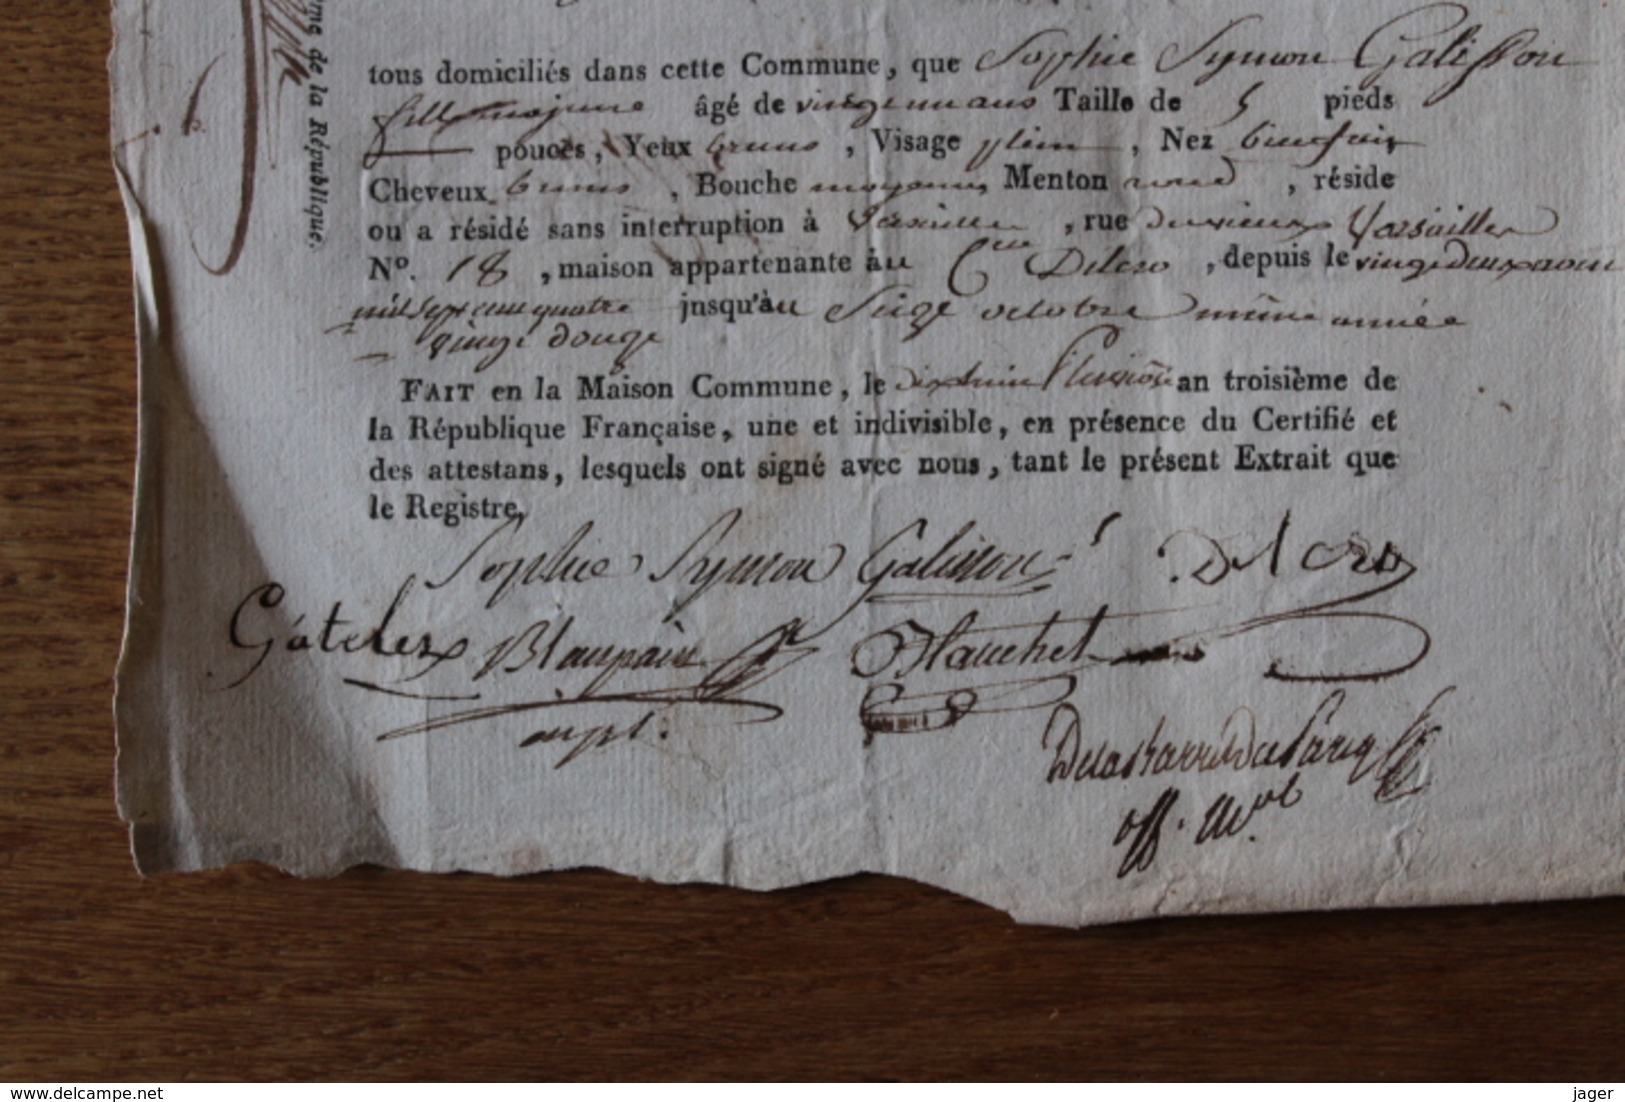 me de la République.
tous domiciliés dans cette Commune, que Sophie Symon Galisson
fille majeure âgé de vingt un ans Taille de 5 pieds
pouces, Yeux bruns, Visage plein, Nez bien fait
Cheveux bruns, Bouche moyenne, Menton rond, réside
ou a résidé sans interruption à Versailles, rue du vieux Versailles
No. 18, maison appartenante àu Cen Delcro, depuis le vingt deux aout
mil sept cent quatre jusqu'àu Seize octobre même année
vingt douze
FAIT en la Maison Commune, le dix huit Pluviôse an troisième de
la République Française, une et indivisible, en présence du Certifié et
des attestans, lesquels ont signé avec nous, tant le présent Extrait que
le Registre,
Sophie Symon Galisson Delcro
Gatelex Blanchet
off. mal
www.delcampe.net jager